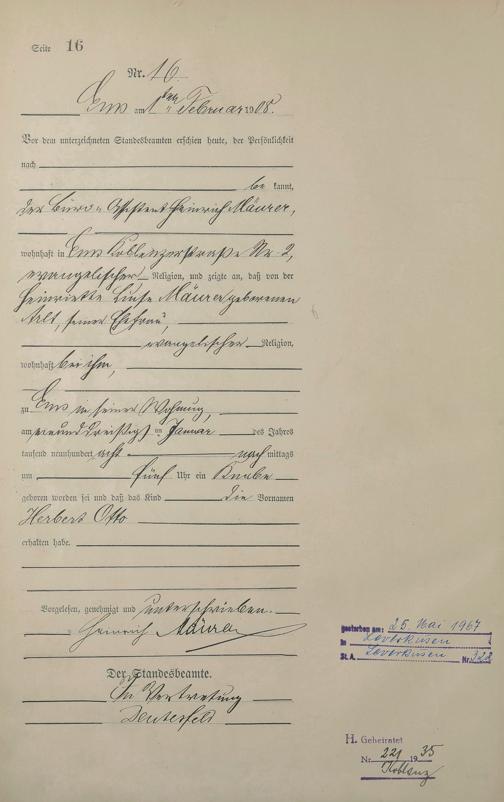 Seite 16
Nr. 16
Ems am 1ten Februar 1908.
Vor dem unterzeichneten Standesbeamten erschien heute, der Persönlichkeit
nach
be kannt,
der Büro-Assistent Heinrich Mäurer,
wohnhaft in Ems Koblenzerstraße Nr. 2,
evangelischer Religion, und zeigte an, daß von der
Henriette Luise Mäurer geborenen
Arlt, seiner Ehefrau,
evangelischer Religion,
wohnhaft bei ihm,
zu Ems in seiner Wohnung,
am einunddreißigsten Januar des Jahres
tausend neunhundert acht nach mittags
um fünf Uhr ein Knabe
geboren worden sei und daß das Kind die Vornamen
Herbert Otto
erhalten habe.
Vorgelesen, genehmigt und unterschrieben.
Heinrich Mäurer
Der Standesbeamte.
In Vertretung
gestorben am: 25. Mai 1967
in Leverkusen
St. A. Leverkusen Nr. 322
H. Geheiratet
Nr. 221 1935
Koblenz